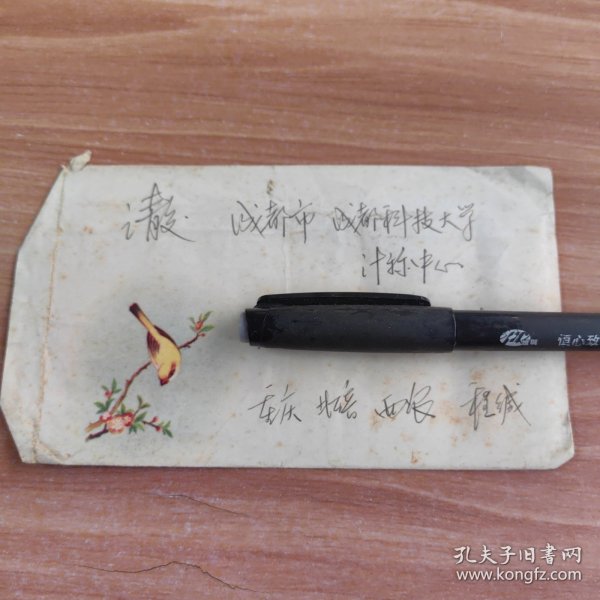 请交 成都市 成都科技大学
计称中心
重庆 北碚 西农 程缄
恒心致
孔夫子旧书网
www.kongfz.com